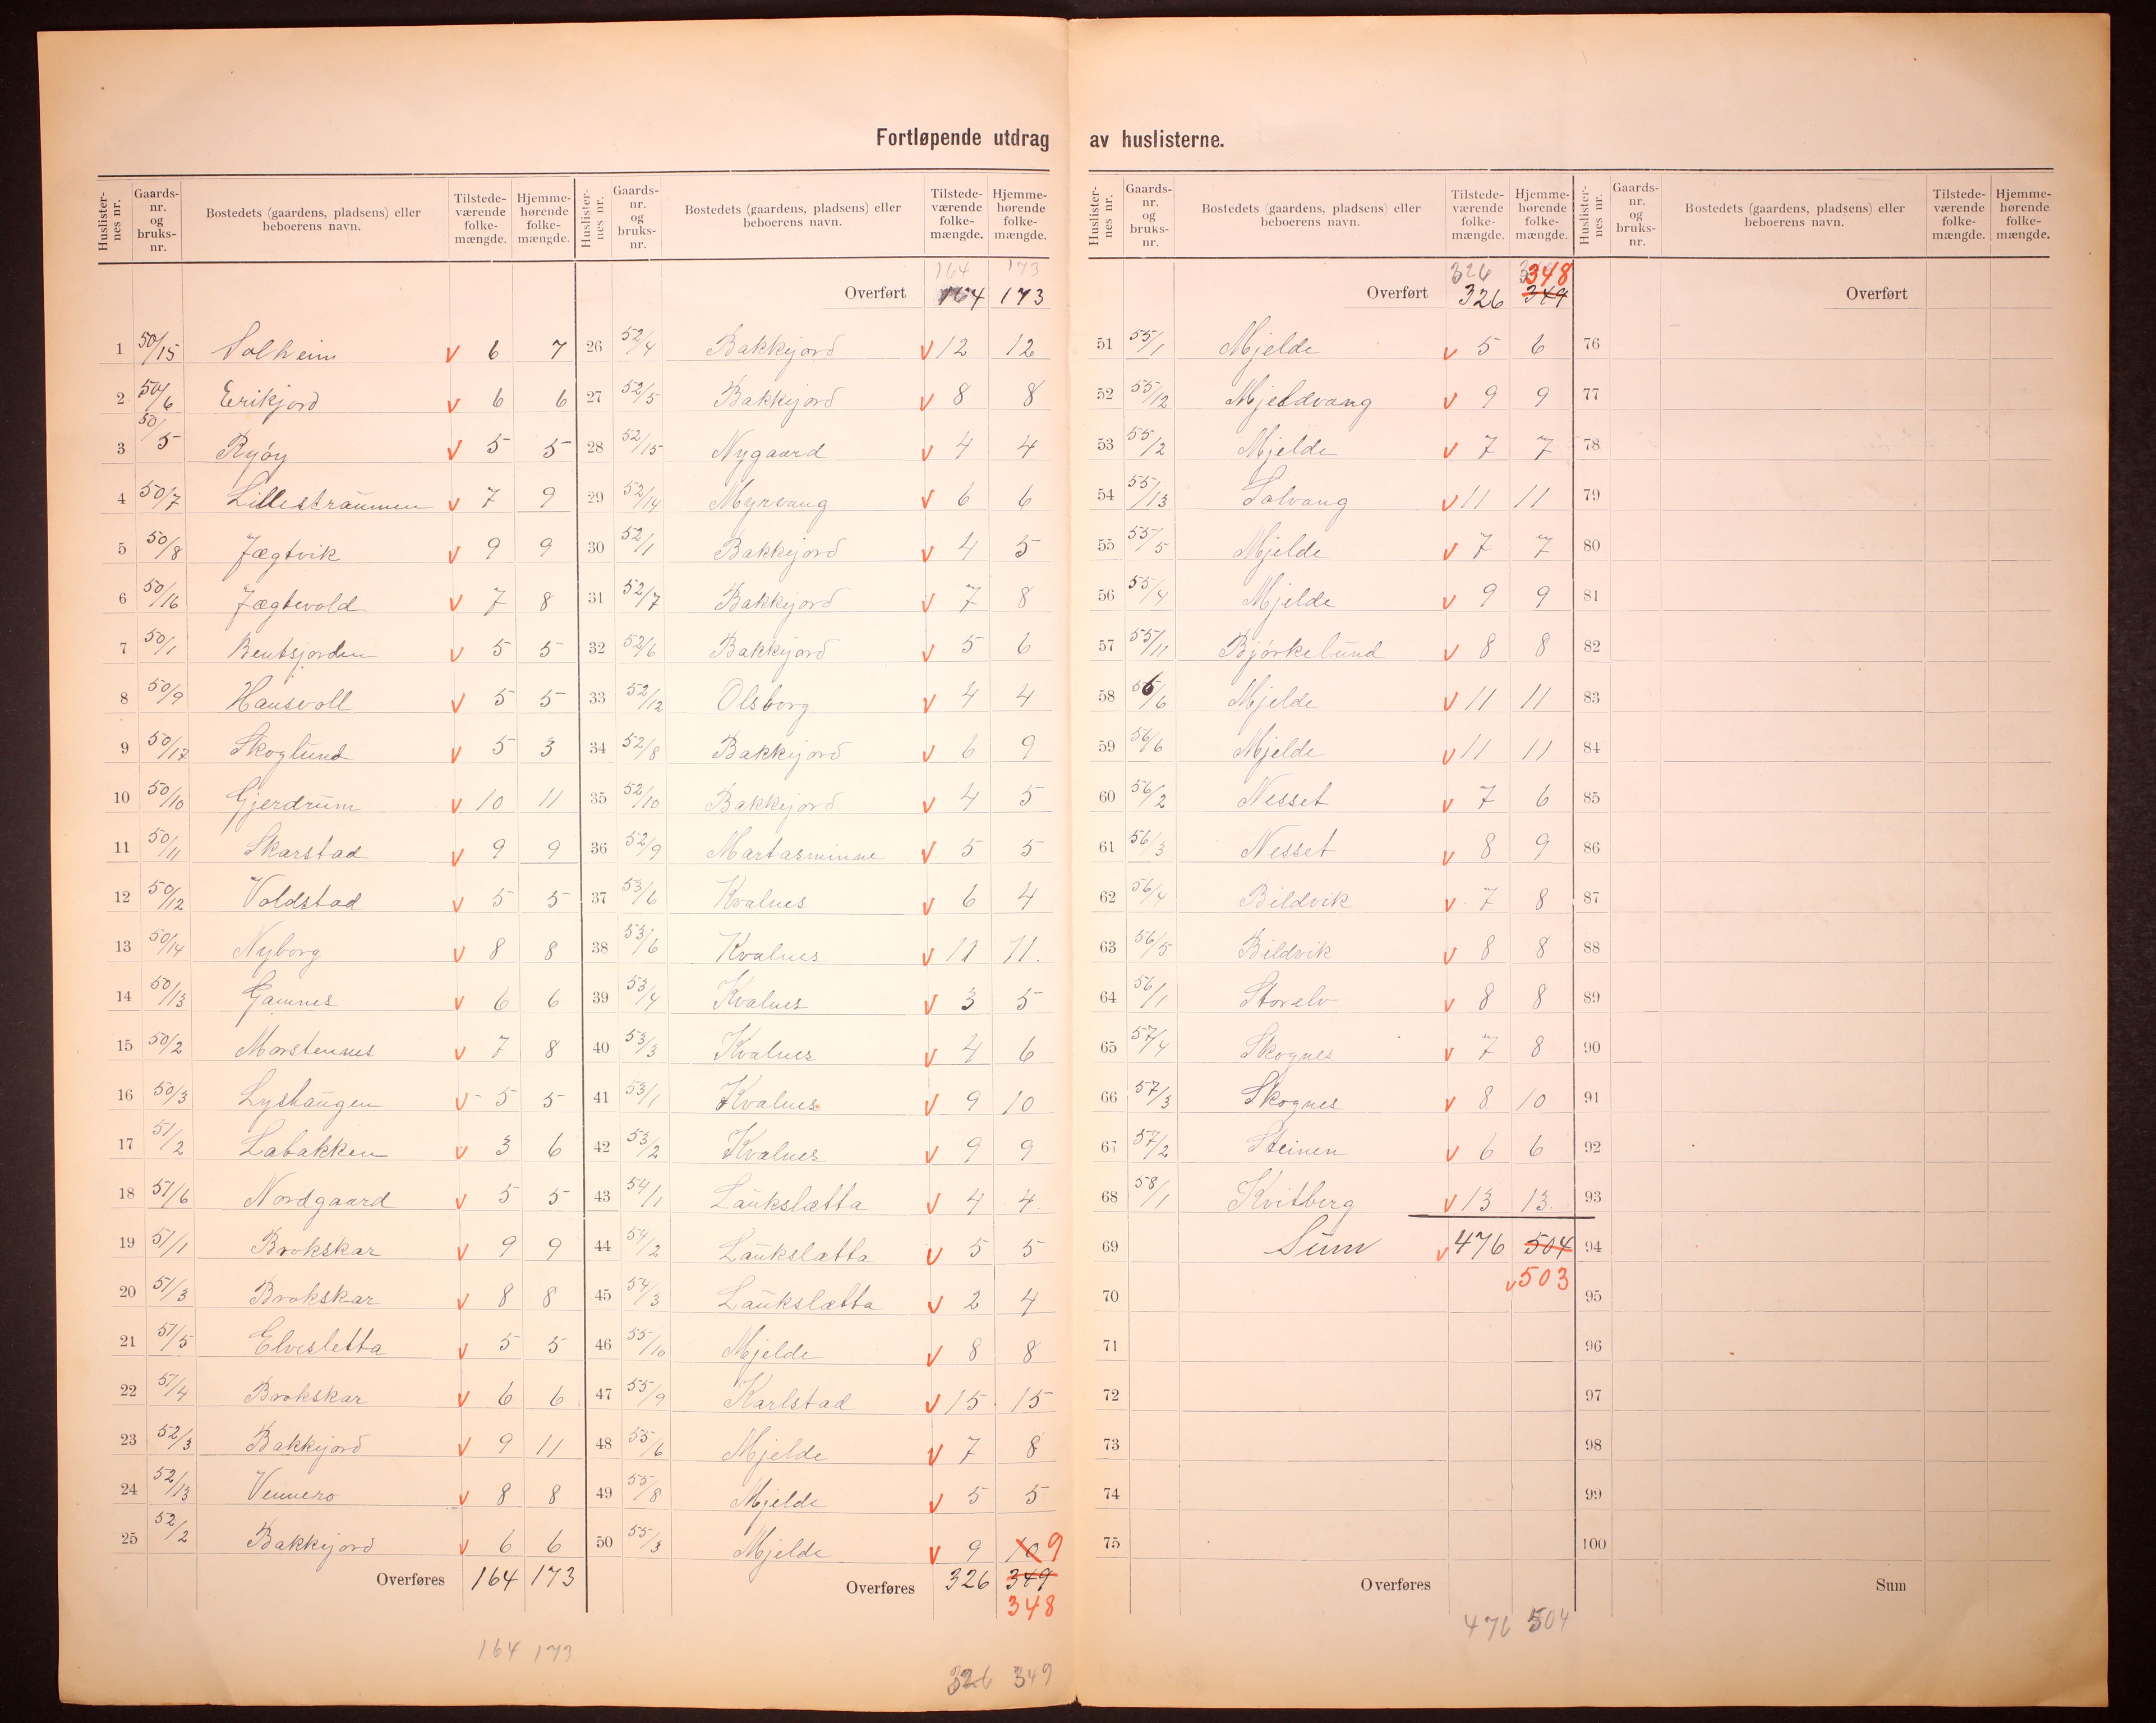 Fortløpende utdrag av huslisterne.
Huslisternes nr. Gaards-nr. og bruks-nr. Bostedets (gaardens, pladsens) eller beboerens navn. Tilstede-værende folke-mængde. Hjemme-hørende folke-mængde.
1 50/15 Solheim v 6 7
2 50/6 Erikjord v 6 6
3 50/5 Ryøy v 5 5
4 50/7 Lillestraumen v 7 9
5 50/8 Jægtvik v 9 9
6 50/16 Jægtevold v 7 8
7 50/1 Bentsjorden v 5 5
8 50/9 Hansvoll v 5 5
9 50/17 Skoglund v 5 3
10 50/10 Gjerdrum v 10 11
11 50/11 Skarstad v 9 9
12 50/12 Voldstad v 5 5
13 50/14 Nyborg v 8 8
14 50/13 Gamnes v 6 6
15 50/2 Marstennes v 7 8
16 50/3 Lyshaugen v 5 5
17 51/2 Labakken v 3 6
18 51/6 Nordgaard v 5 5
19 51/1 Brokskar v 9 9
20 51/3 Brokskar v 8 8
21 51/5 Elvesletta v 5 5
22 51/4 Brokskar v 6 6
23 52/3 Bakkejord v 9 11
24 52/13 Vennero v 8 8
25 52/2 Bakkejord v 6 6
Overføres 164 173
164 173
Huslisternes nr. Gaards-nr. og bruks-nr. Bostedets (gaardens, pladsens) eller beboerens navn. Tilstede-værende folke-mængde. Hjemme-hørende folke-mængde.
164 173
Overført 164 173
26 52/4 Bakkejord v 12 12
27 52/5 Bakkejord v 8 8
28 52/15 Nygaard v 4 4
29 52/14 Myrvang v 6 6
30 52/1 Bakkejord v 4 5
31 52/7 Bakkejord v 7 8
32 52/6 Bakkejord v 5 6
33 52/12 Olsborg v 4 4
34 52/8 Bakkejord v 6 9
35 52/10 Bakkejord v 4 5
36 52/9 Martasminne v 5 5
37 53/6 Kvalnes v 6 4
38 53/6 Kvalnes v 11 11.
39 53/4 Kvalnes v 3 5
40 53/3 Kvalnes v 4 6
41 53/1 Kvalnes v 9 10
42 53/2 Kvalnes v 9 9
43 54/1 Laukslætta v 4 4
44 54/2 Laukslætta v 5 5
45 54/3 Laukslætta v 2 4
46 55/10 Mjelde v 8 8
47 55/9 Karlstad v 15 15
48 55/6 Mjelde v 7 8
49 55/8 Mjelde v 5 5
50 55/3 Mjelde v 9 10 9
Overføres 326 349
348
326 349
Huslisternes nr. Gaards-nr. og bruks-nr. Bostedets (gaardens, pladsens) eller beboerens navn. Tilstede-værende folke-mængde. Hjemme-hørende folke-mængde.
326 348
Overført 326 349
51 55/1 Mjelde v 5 6
52 55/12 Mjeldvang v 9 9
53 55/2 Mjelde v 7 7
54 55/13 Solvang v 11 11
55 55/5 Mjelde v 7 7
56 55/4 Mjelde v 9 9
57 55/11 Bjørkelund v 8 8
58 56/6 Mjelde v 11 11
59 56/6 Mjelde v 11 11
60 56/2 Nesset v 7 6
61 56/3 Nesset v 8 9
62 56/4 Bildvik v 7 8
63 56/5 Bildvik v 8 8
64 56/1 Storelv v 8 8
65 57/4 Skognes v 7 8
66 57/3 Skognes v 8 10
67 57/2 Steinen v 6 6
68 58/1 Kvitberg v 13 13.
69 Sum v 476 504
v 503
70
71
72
73
74
75
Overføres
476 504
Huslisternes nr. Gaards-nr. og bruks-nr. Bostedets (gaardens, pladsens) eller beboerens navn. Tilstede-værende folke-mængde. Hjemme-hørende folke-mængde.
Overført
76
77
78
79
80
81
82
83
84
85
86
87
88
89
90
91
92
93
94
95
96
97
98
99
100
Sum